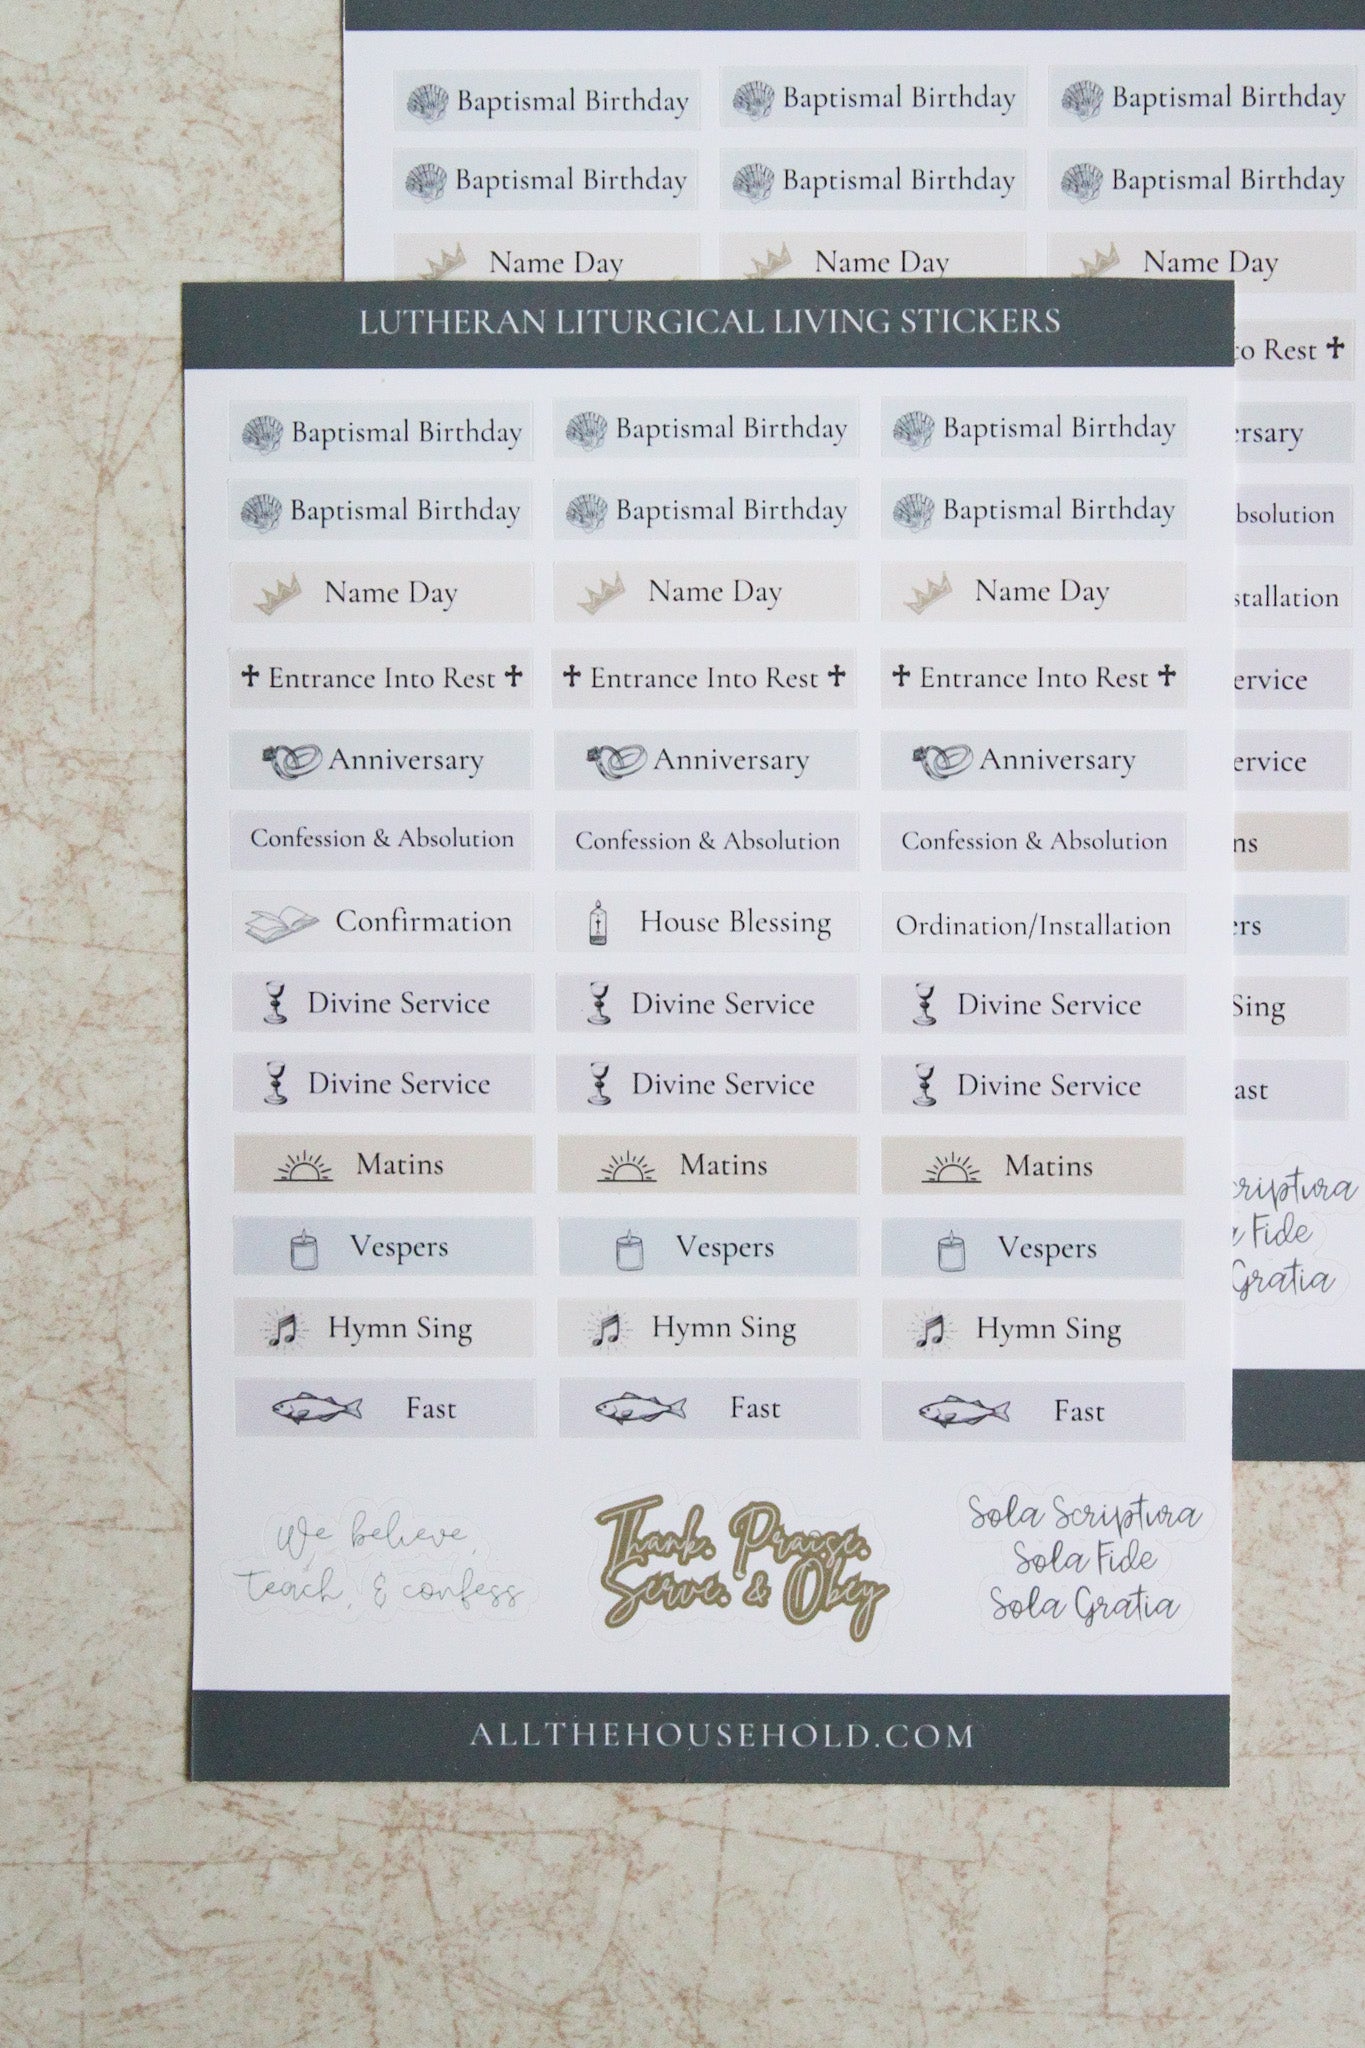 Baptismal Birthday Baptismal Birthday Baptismal Birthday
Baptismal Birthday Baptismal Birthday Baptismal Birthday
Name Day Name Day Name Day
LUTHERAN LITURGICAL LIVING STICKERS
to Rest
Baptismal Birthday Baptismal Birthday Baptismal Birthday
ersary
Baptismal Birthday Baptismal Birthday Baptismal Birthday
bsolution
Name Day Name Day Name Day
stallation
Entrance Into Rest Entrance Into Rest Entrance Into Rest
ervice
Anniversary Anniversary Anniversary
ervice
Confession & Absolution Confession & Absolution Confession & Absolution
ns
Confirmation House Blessing Ordination/Installation
ers
Divine Service Divine Service Divine Service
Sing
Divine Service Divine Service Divine Service
ast
Matins Matins Matins
criptura
Vespers Vespers Vespers
Fide
Gratia
Hymn Sing Hymn Sing Hymn Sing
Fast Fast Fast
We believe,
teach, & confess
Thank, Praise,
Serve, & Obey
Sola Scriptura
Sola Fide
Sola Gratia
ALLTHEHOUSEHOLD.COM